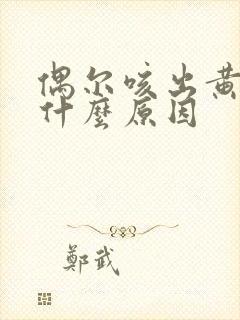 偶尔咳出黄
什麼原因
鄭武